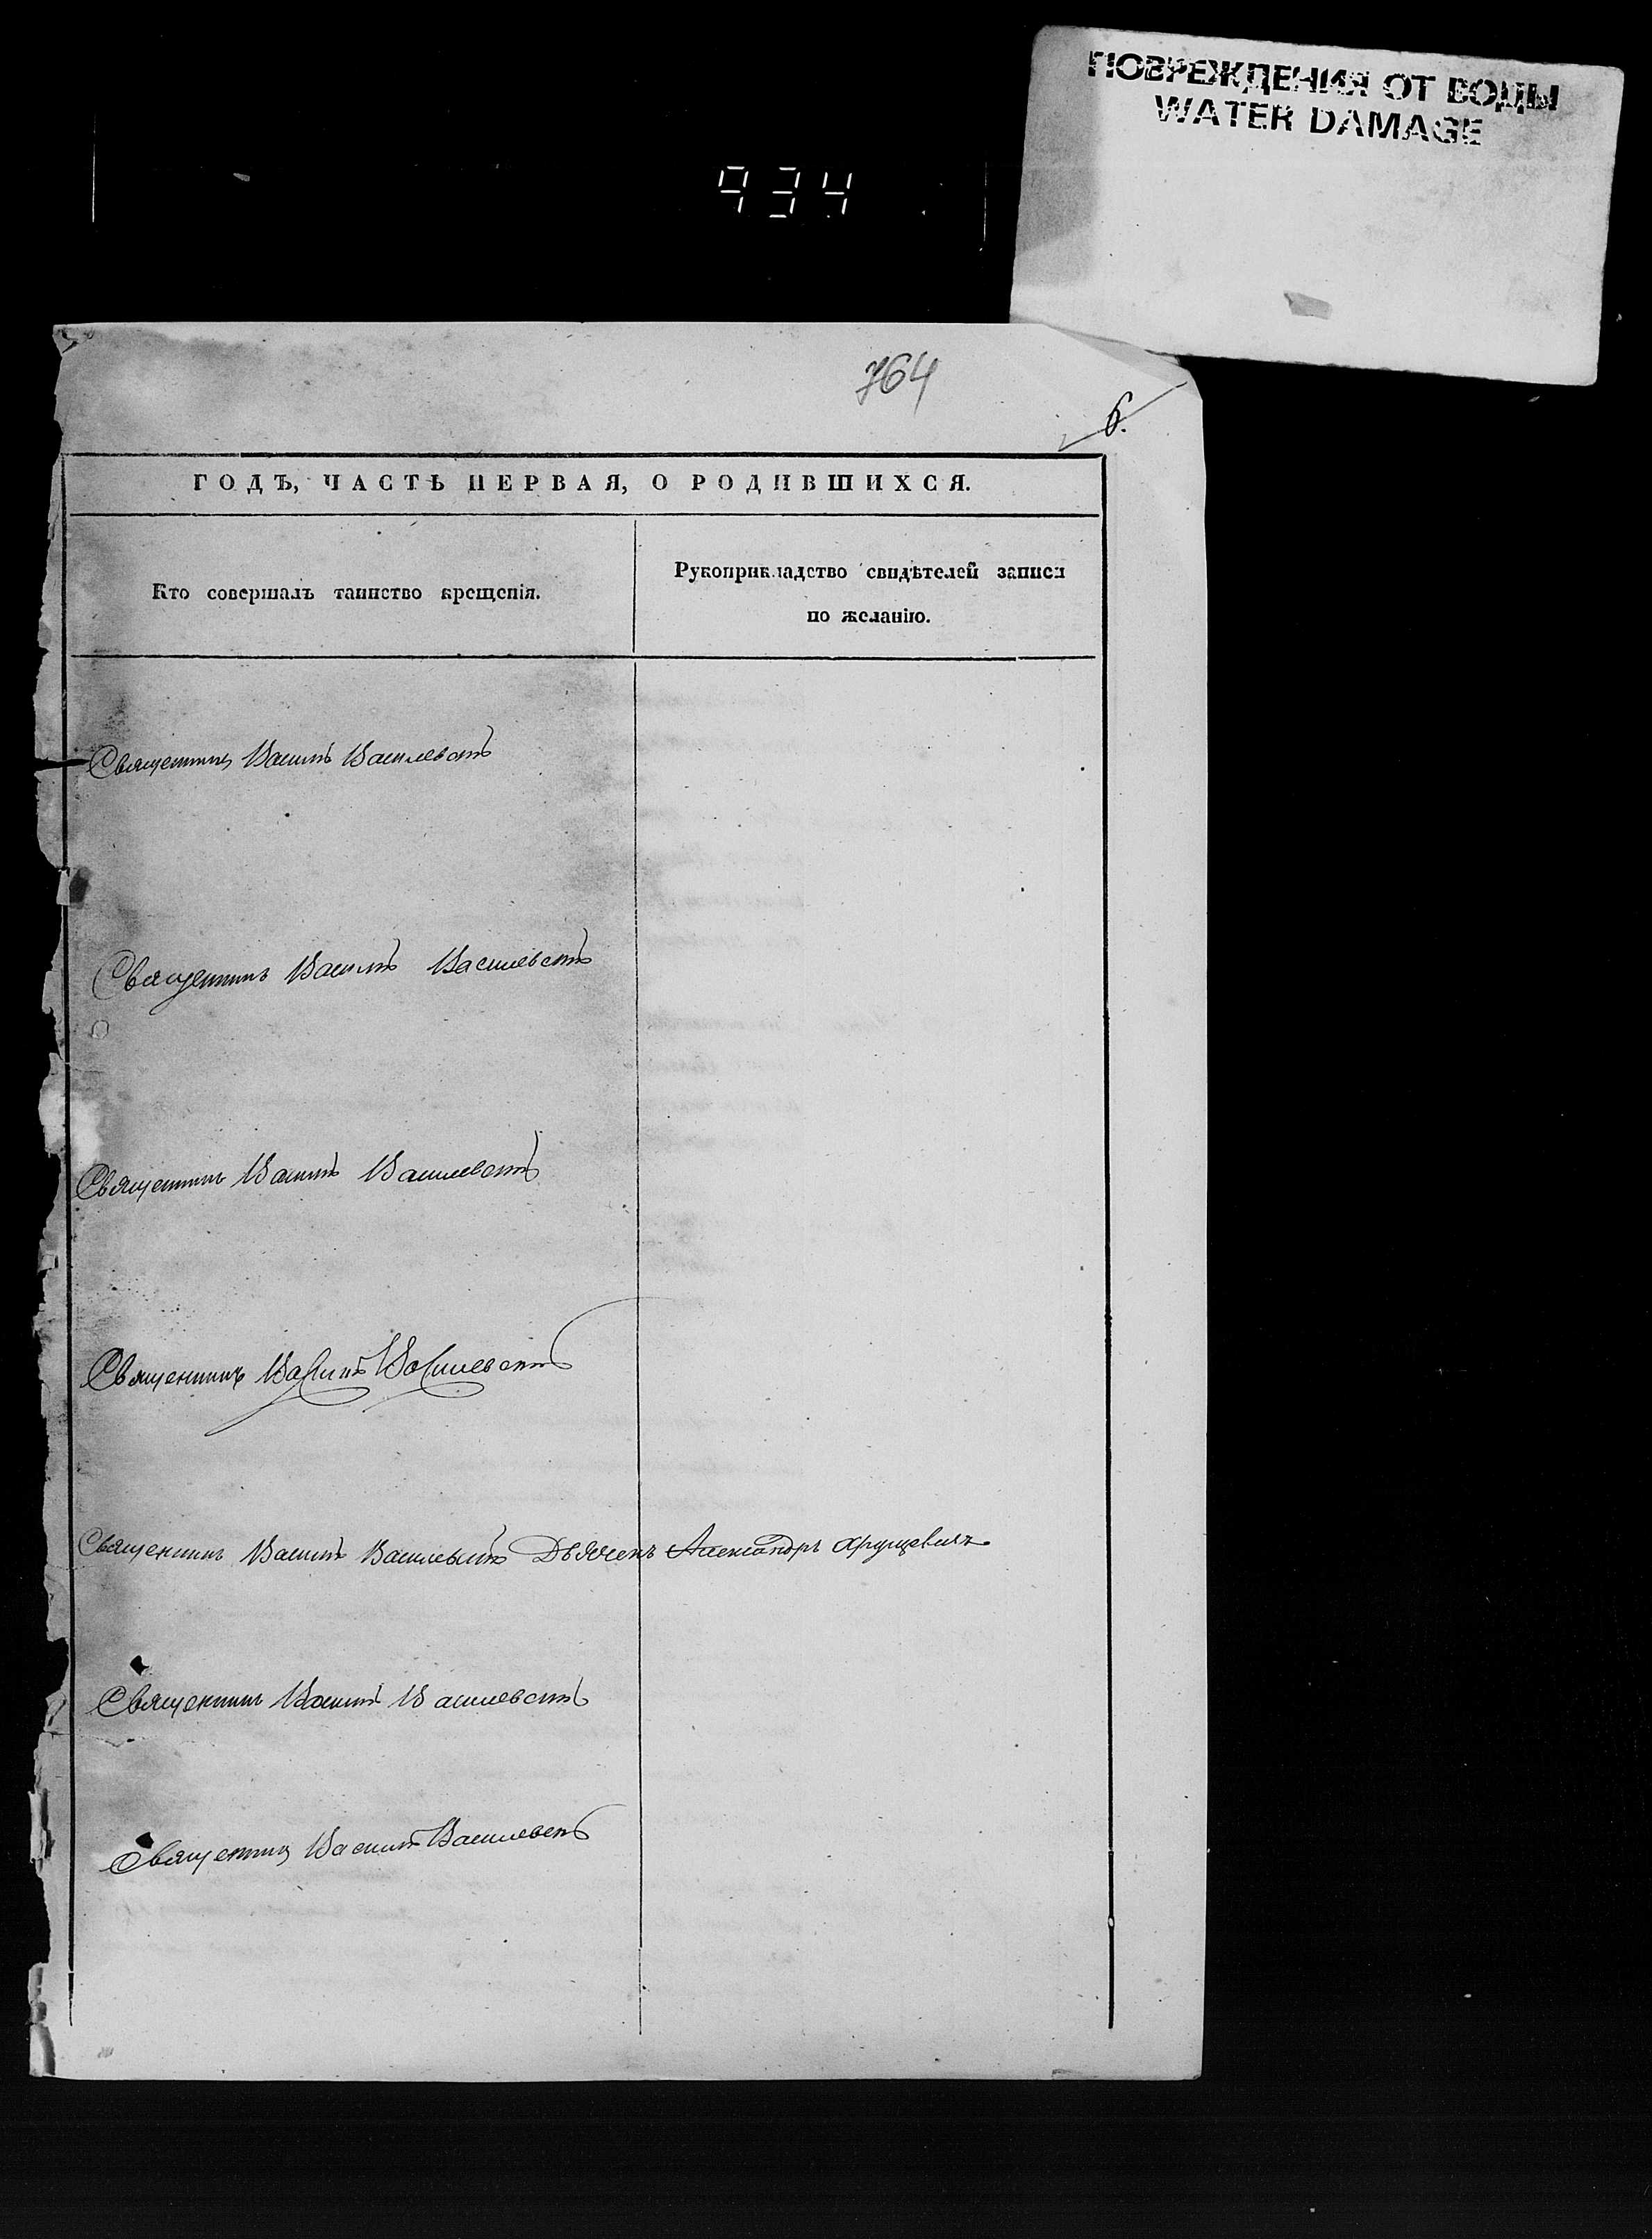 ПОВРЕЖДЕНИЯ ОТ ВОДЫ
WATER DAMAGE
934
764
6.
ГОДЪ, ЧАСТЬ ПЕРВАЯ, О РОДИВШИХСЯ.
Кто совершалъ таинство крещенія.
Рукоприкладство свидѣтелей записи
по желанію.
Священникъ Василій Василевскій
Священникъ Василій Василевскій
Священникъ Василій Василевскій
Священникъ Василій Василевскій
Священникъ Василій Василевскій Дьячекъ Александръ Хруцевичъ
Священникъ Василій Василевскій
Священникъ Василій Василевскій